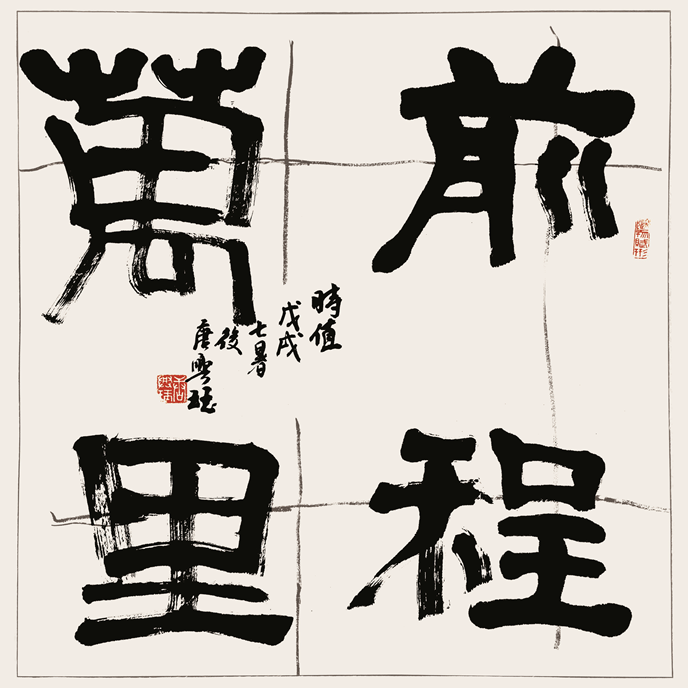 前程
萬里
時值
戊戌
七暑
後
唐雙